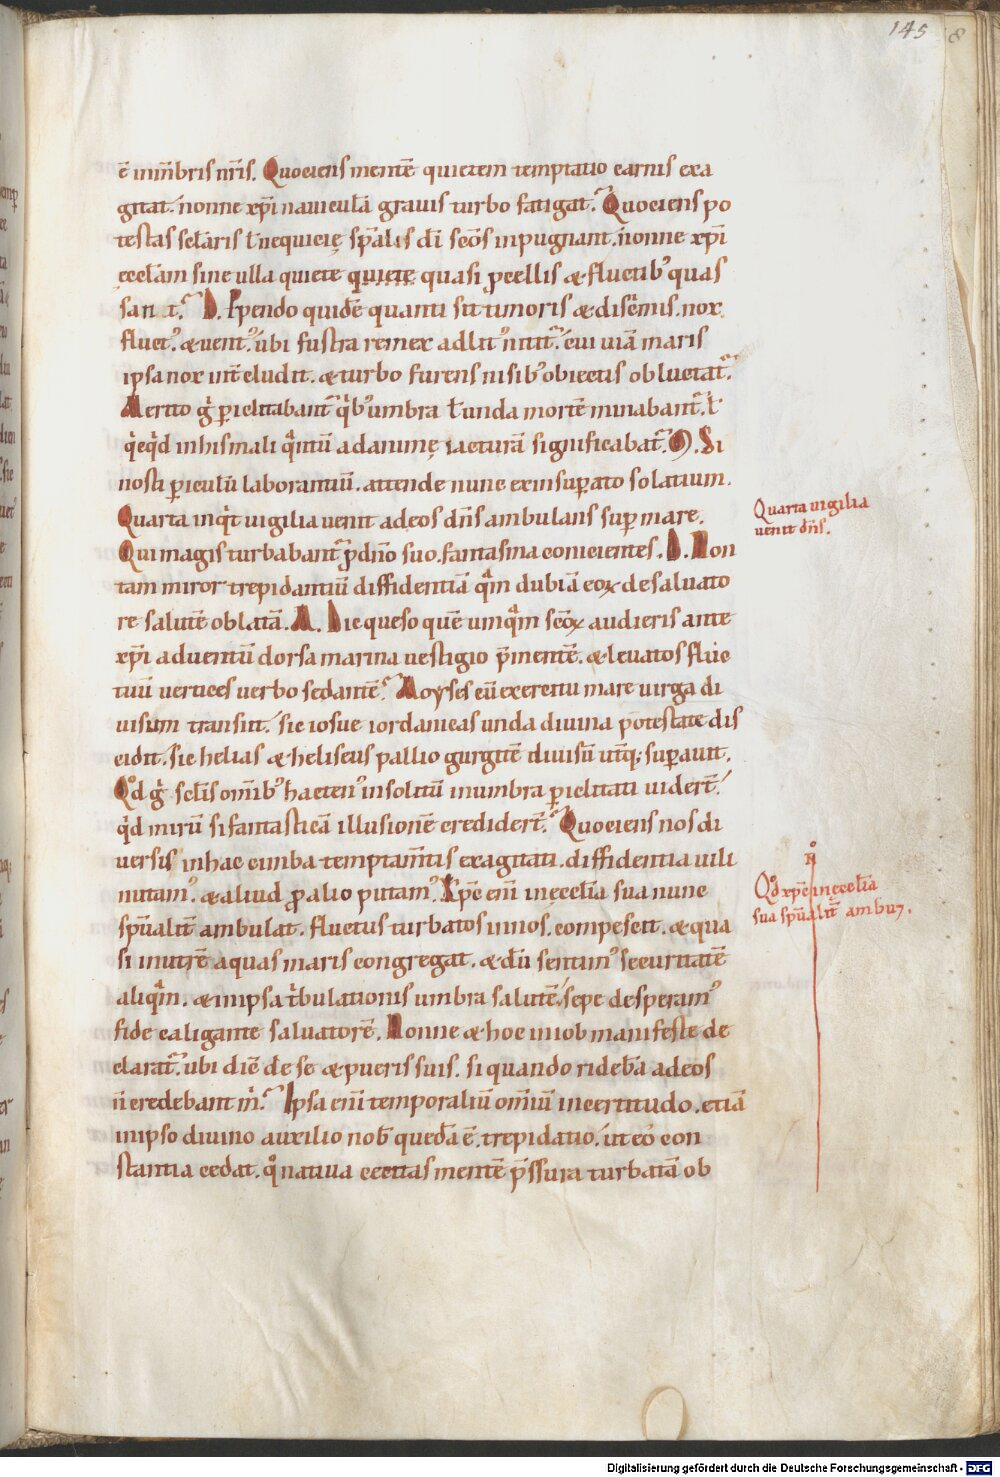 145 8
ē inmēbris nr̄is. Quociens mentē quietem temptatio carnis exa
gitat. nonne xp̄i naviculā gravis turbo fatigat. Quociens po
testas sclāris ł nequicię sp̄alis dī scōs inpugnant. nonne xp̄i
ęcclām sine ulla quiete quiete quasi pcellis & fluctib' quas
sat. D. Ppendo quidē quanti sit timoris & discīnis. nox
fluct'. & vent'. ubi frustra remex adlit' nitit'. cui viā maris
ipsa nox int̄cludit. & turbo furens nisib' obiectis obluctat'.
Merito g̊ piclitabant' qb' umbra ł unda mortē minabant'. ł
qcqd inhis mali qntū ad animę iacturā significabat'. M. Si
nosti piculū laborantiū. attende nunc ex insuperato solatium.
Quarta inqt vigilia venit ad eos dn̄s ambulans super mare.
Qui magis turbabant' p dn̄o suo. fantasma conicientes. D. Non
tam miror trepidantiū diffidentiā qm dubiā eoꝝ de salvato
re salutē oblatā. M. Dic queso quē umqm scōꝝ audieris ante
xp̄i adventū dorsa marina vestigio p̄mentē. & levatos fluc
tuū vertices verbo sedantē. Moyses cū exercitu mare virga di
visum transiit. sic iosue iordanicas unda divina potestate dis
cidit. sic helias & heliseus pallio gurgitē divisū utq; supavit.
Qd g̊ sclis omīb' hacten' insolitū inumbra piclitati vidert̄.
qd mirū si fantasticā illusionē credidert̄. Quociens nos di
versis in hac cimba temptam̄tis exagitati. diffidentia vili
nutam'. & aliud pro alio putam'. Xp̄c enī in ęcclīa sua nunc
sp̄ualit̄ ambulat. fluctus turbatos innos. compescit. & qua
si inutrē aquas maris congregat. & dū sentim' securitatē
aliqm. & in ipsa tbulationis umbra salutē. sepe desperam'
fide caligante salvatorē. Nonne & hoc in iob manifeste de
clarat'. ubi dic̄ de se & pueris suis. si quando ridebā ad eos
n̄ credebant m̄. Ipsa enī temporaliū omīū incertitudo. etiā
in ipso divino auxilio nob̄ quedā ē. trepidatio. ut eo con
stantia cedat. q nativa cecitas mentē p̄ssura turbatā ob
Quarta vigilia
venit dn̄s.
Qd xp̄c in ęcclīa
sua sp̄ualit̄ ambul'.